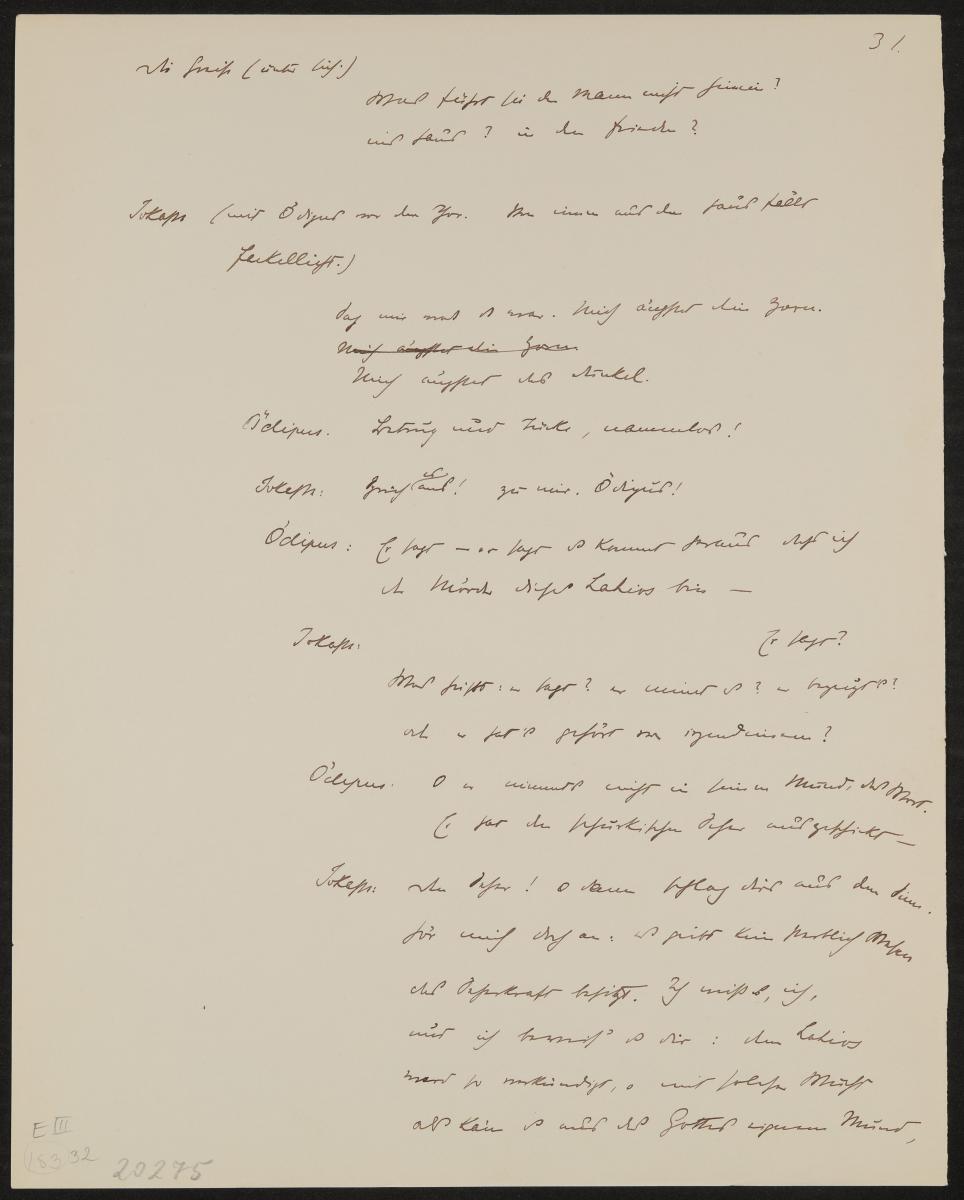 31.
die Greise (unter sich.)
Was führt sie den Mann nicht hinein?
ins Haus? in den Frieden?
Jokaste (mit Ödipus vor dem Thor. Von innen aus dem Haus fällt
Fackellicht.)
Sag mir was es war. Mich ängstet dein Zorn.
Mich ängstet dein Zorn
Mich ängstet das Dunkel.
Ödipus. Betrug und Tücke, namenlos!
Jokaste: Sprich es aus! zu mir. Ödipus!
Ödipus: Er sagt – er sagt es kommt heraus dass ich
der Mörder dieses Laïos bin –
Jokaste: Er sagt?
Was heisst: er sagt? er meint es? er bezeugt's?
oder er hat's gehört von irgendeinem?
Ödipus. O er nimmt's nicht in seinen Mund, das Wort.
Er hat den schurkischen Seher ausgeschickt –
Jokaste: den Seher! o dann schlag dir's aus dem Sinn.
hör mich doch an: es giebt kein sterblich Wesen
das Seherkraft besitzt. Ich weiss es, ich,
und ich beweis' es dir: dem Laïos
ward so verkündigt, o mit solcher Wucht
als käm es aus des Gottes eigenem Mund,
E III
183.32
20275